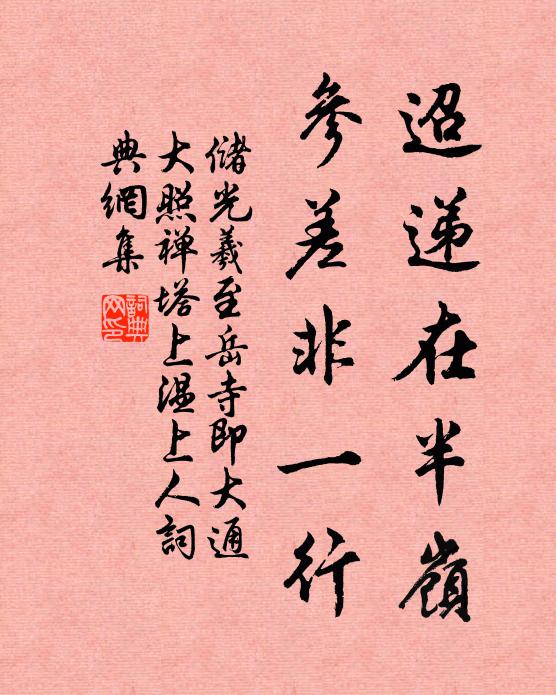 迢递在半嶺
參差非一行
儲光羲至岳寺即大通
大照禅塔上溫上人詞
典網集
詞典
网印